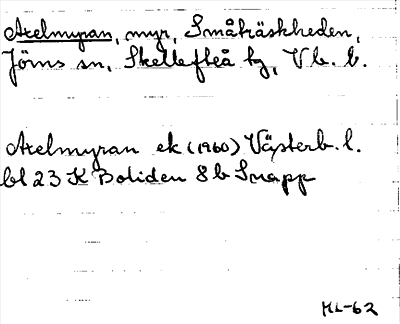 Axelmyran, myr, Småträskheden,
Jörns sn, Skellefteå kg, Vb. l.
Axelmyran ek (1960) Västerb. l.
bl 23 K Boliden 8 b Snapp
HL-62